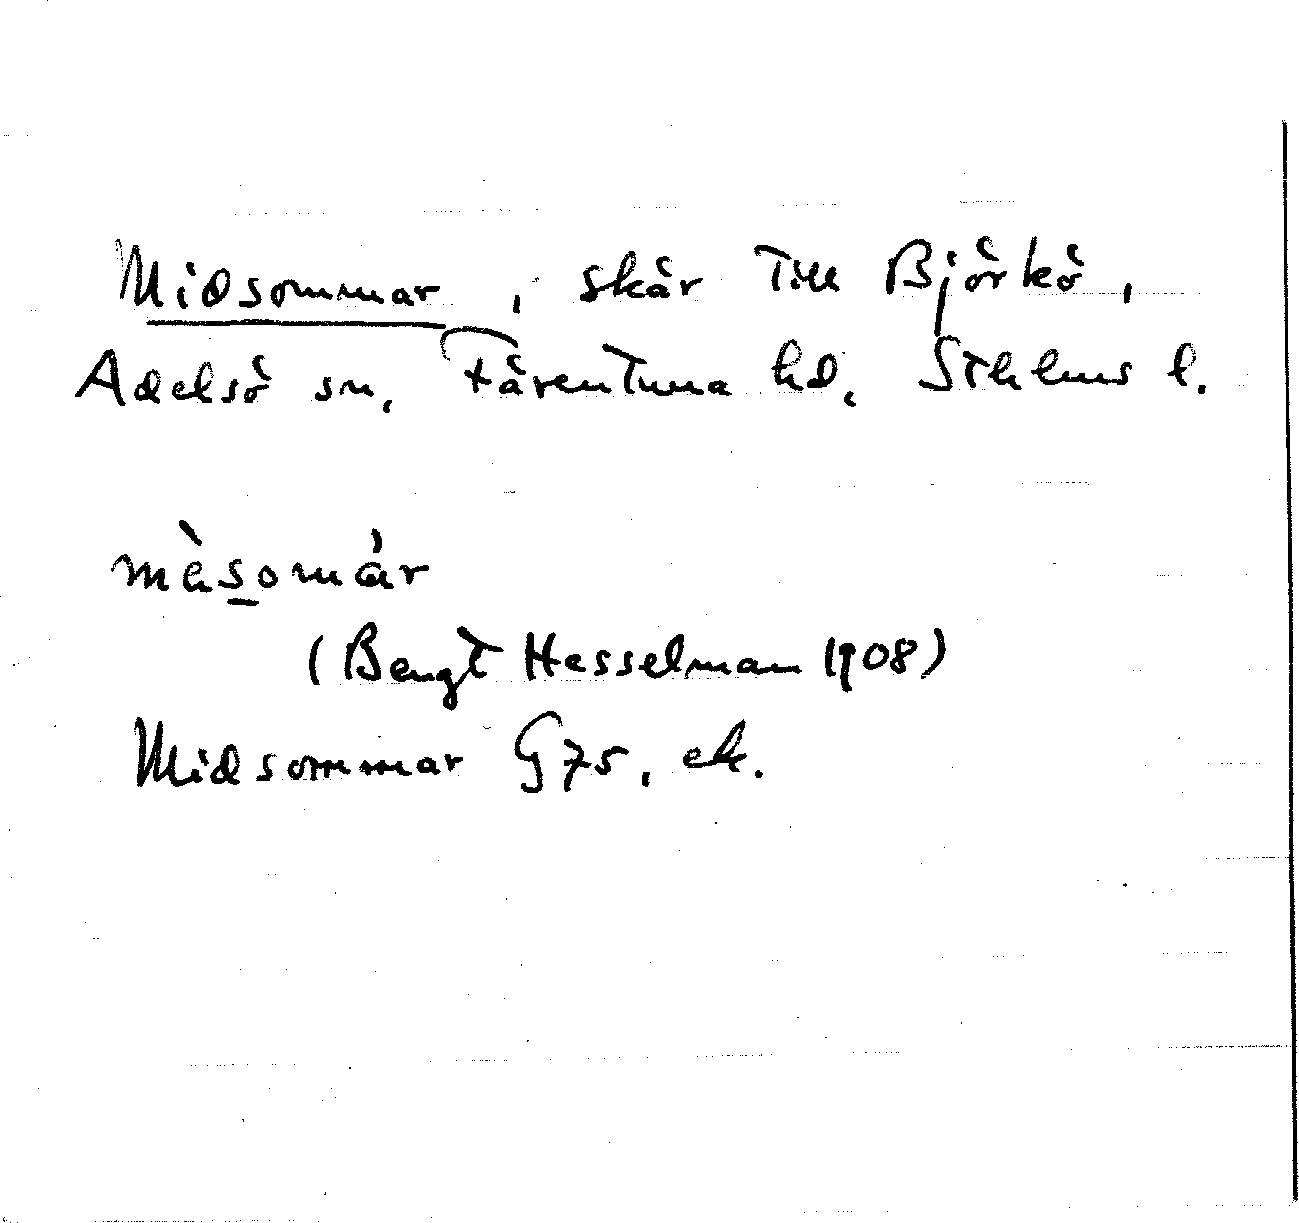 Midsommar, skär till Björkö,
Adelsö sn, Färentuna hd, Sthlms l.
mèsomár
(Bengt Hesselman 1908)
Midsommar G 75, ek.